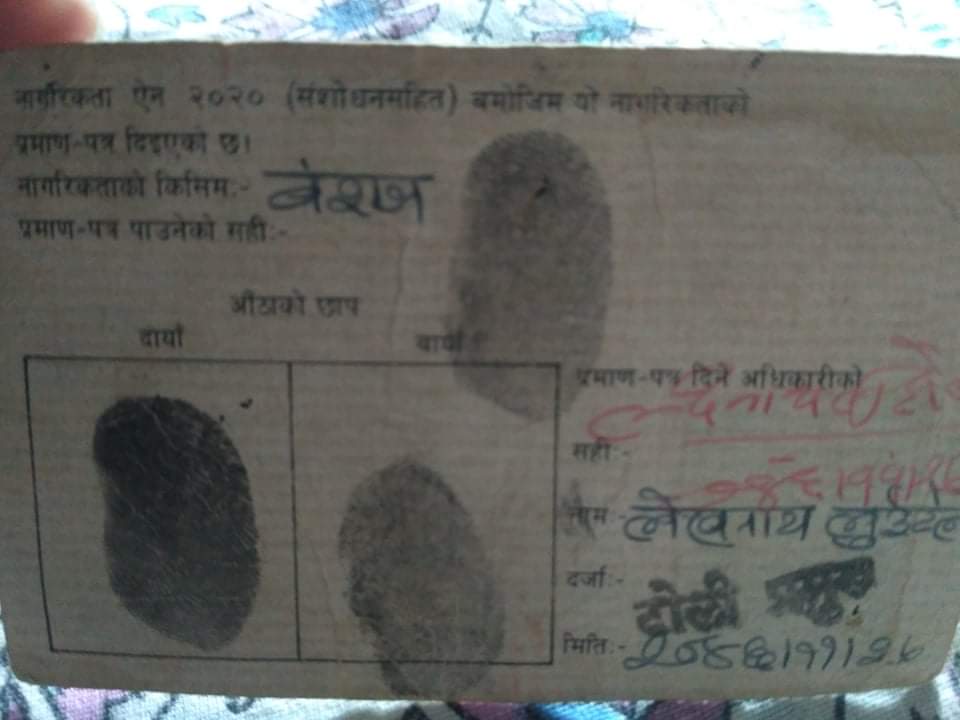 नागरिकता ऐन २०२० (संशोधनसहित) बमोजिम यो नागरिकताको
प्रमाण-पत्र दिइएको छ।
नागरिकताको किसिमः- वंशज
प्रमाण-पत्र पाउनेको सहीः-
औंठाको छाप
दायाँ बायाँ
प्रमाण-पत्र दिने अधिकारीको
सहीः-
नाम लेखनाथ लुइटेल
दर्जाः- टोली प्रमुख
मितिः- २०४६।११।२६